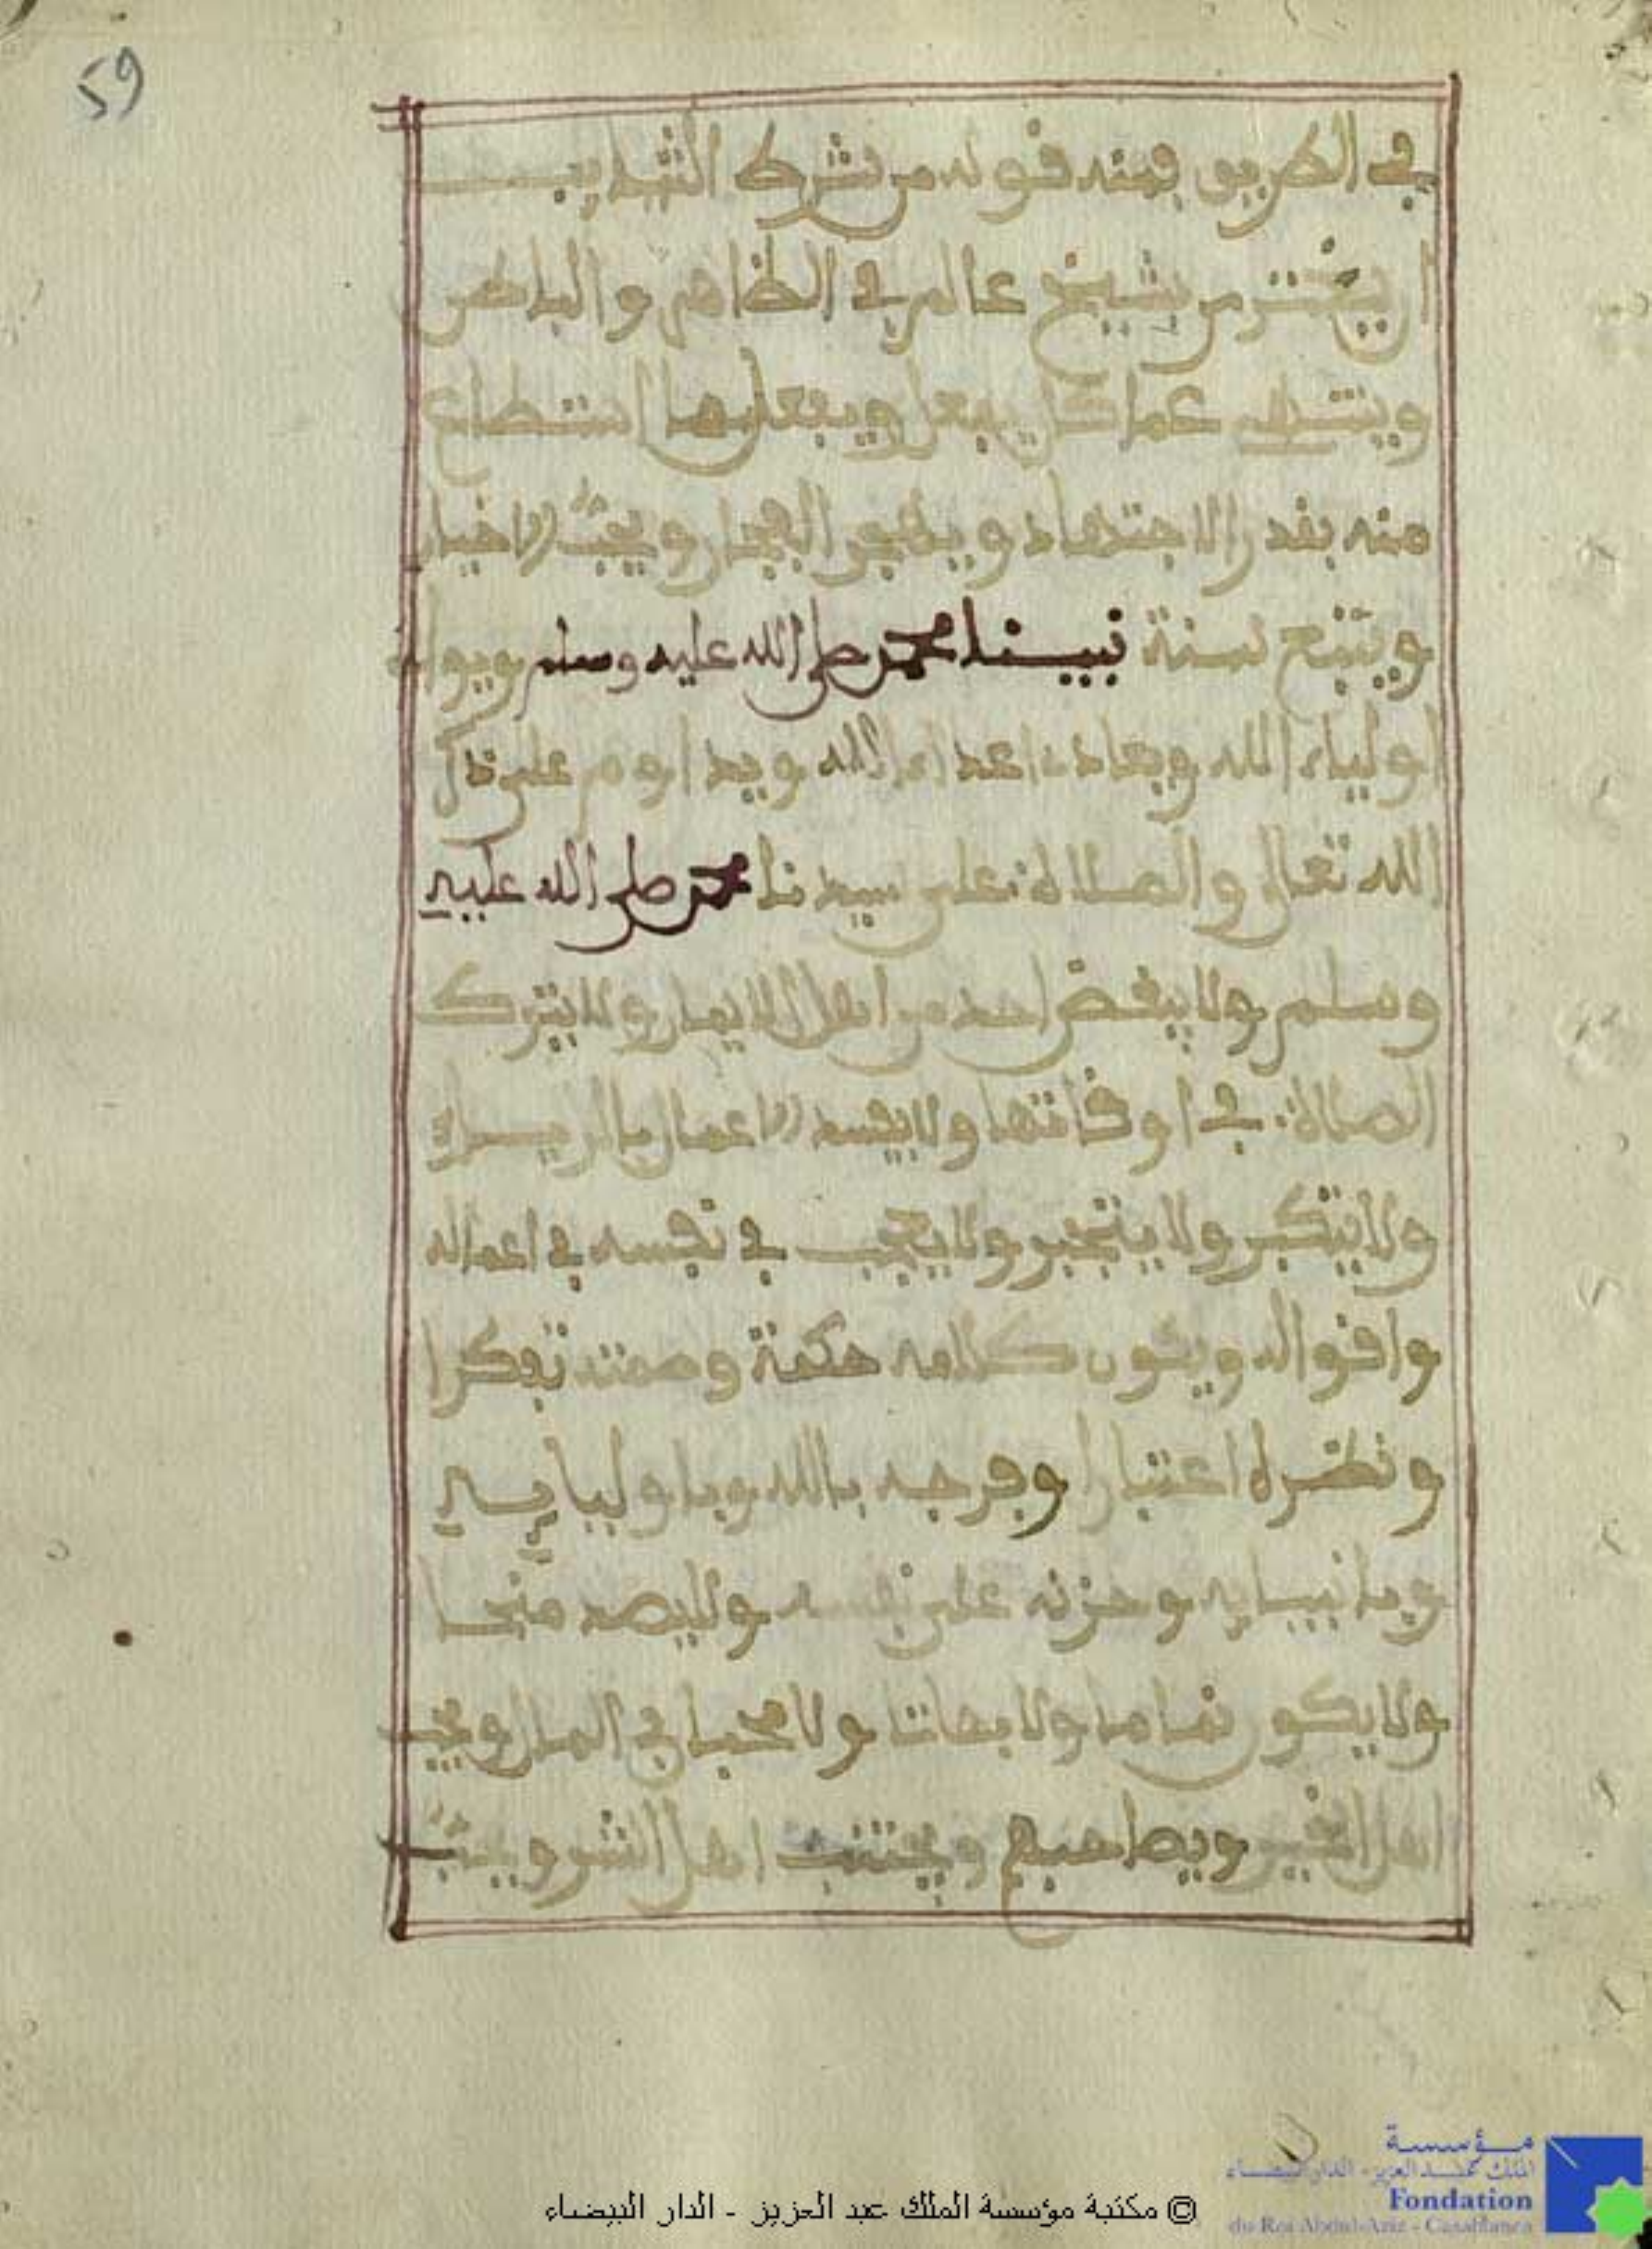 59
في الطريق فمنه قوله من شرك التهذيب
ان يختر من شيخ عالم في الظاهر والباطن
وينتهي عما كان يفعل ويفعل ما استطاع
منه بقدر الاجتهاد ويهجر الفجار ويحب الاخيار
ويتبع سنة نبينا محمد صلى الله عليه وسلم ويوال
اولياء الله ويعاد اعداء الله ويداوم على ذكر
الله تعالى والصلاة على سيدنا محمد صلى الله عليه
وسلم ولا يبغض احد من اهل الايمان ولا يترك
الصلاة في اوقاتها ولا يفسد الاعمال بالرياء
ولا يتكبر ولا يتجبر ولا يعجب في نفسه في اعماله
واقواله ويكون كلامه حكمة وصمته تفكرا
ونظره اعتبارا وفرحه بالله وباوليايه
وبانبيايه وحزنه على نفسه
ولا يكون نماما ولا بهاتا ولا محبا في المال ويحب
اهل الخير ويصاحبهم ويجتنب اهل الشر ويحب
مؤسسة
الملك عبد العزيز - الدار البيضاء
Fondation
du Roi Abdul-Aziz - Casablanca
© مكتبة مؤسسة الملك عبد العزيز - الدار البيضاء